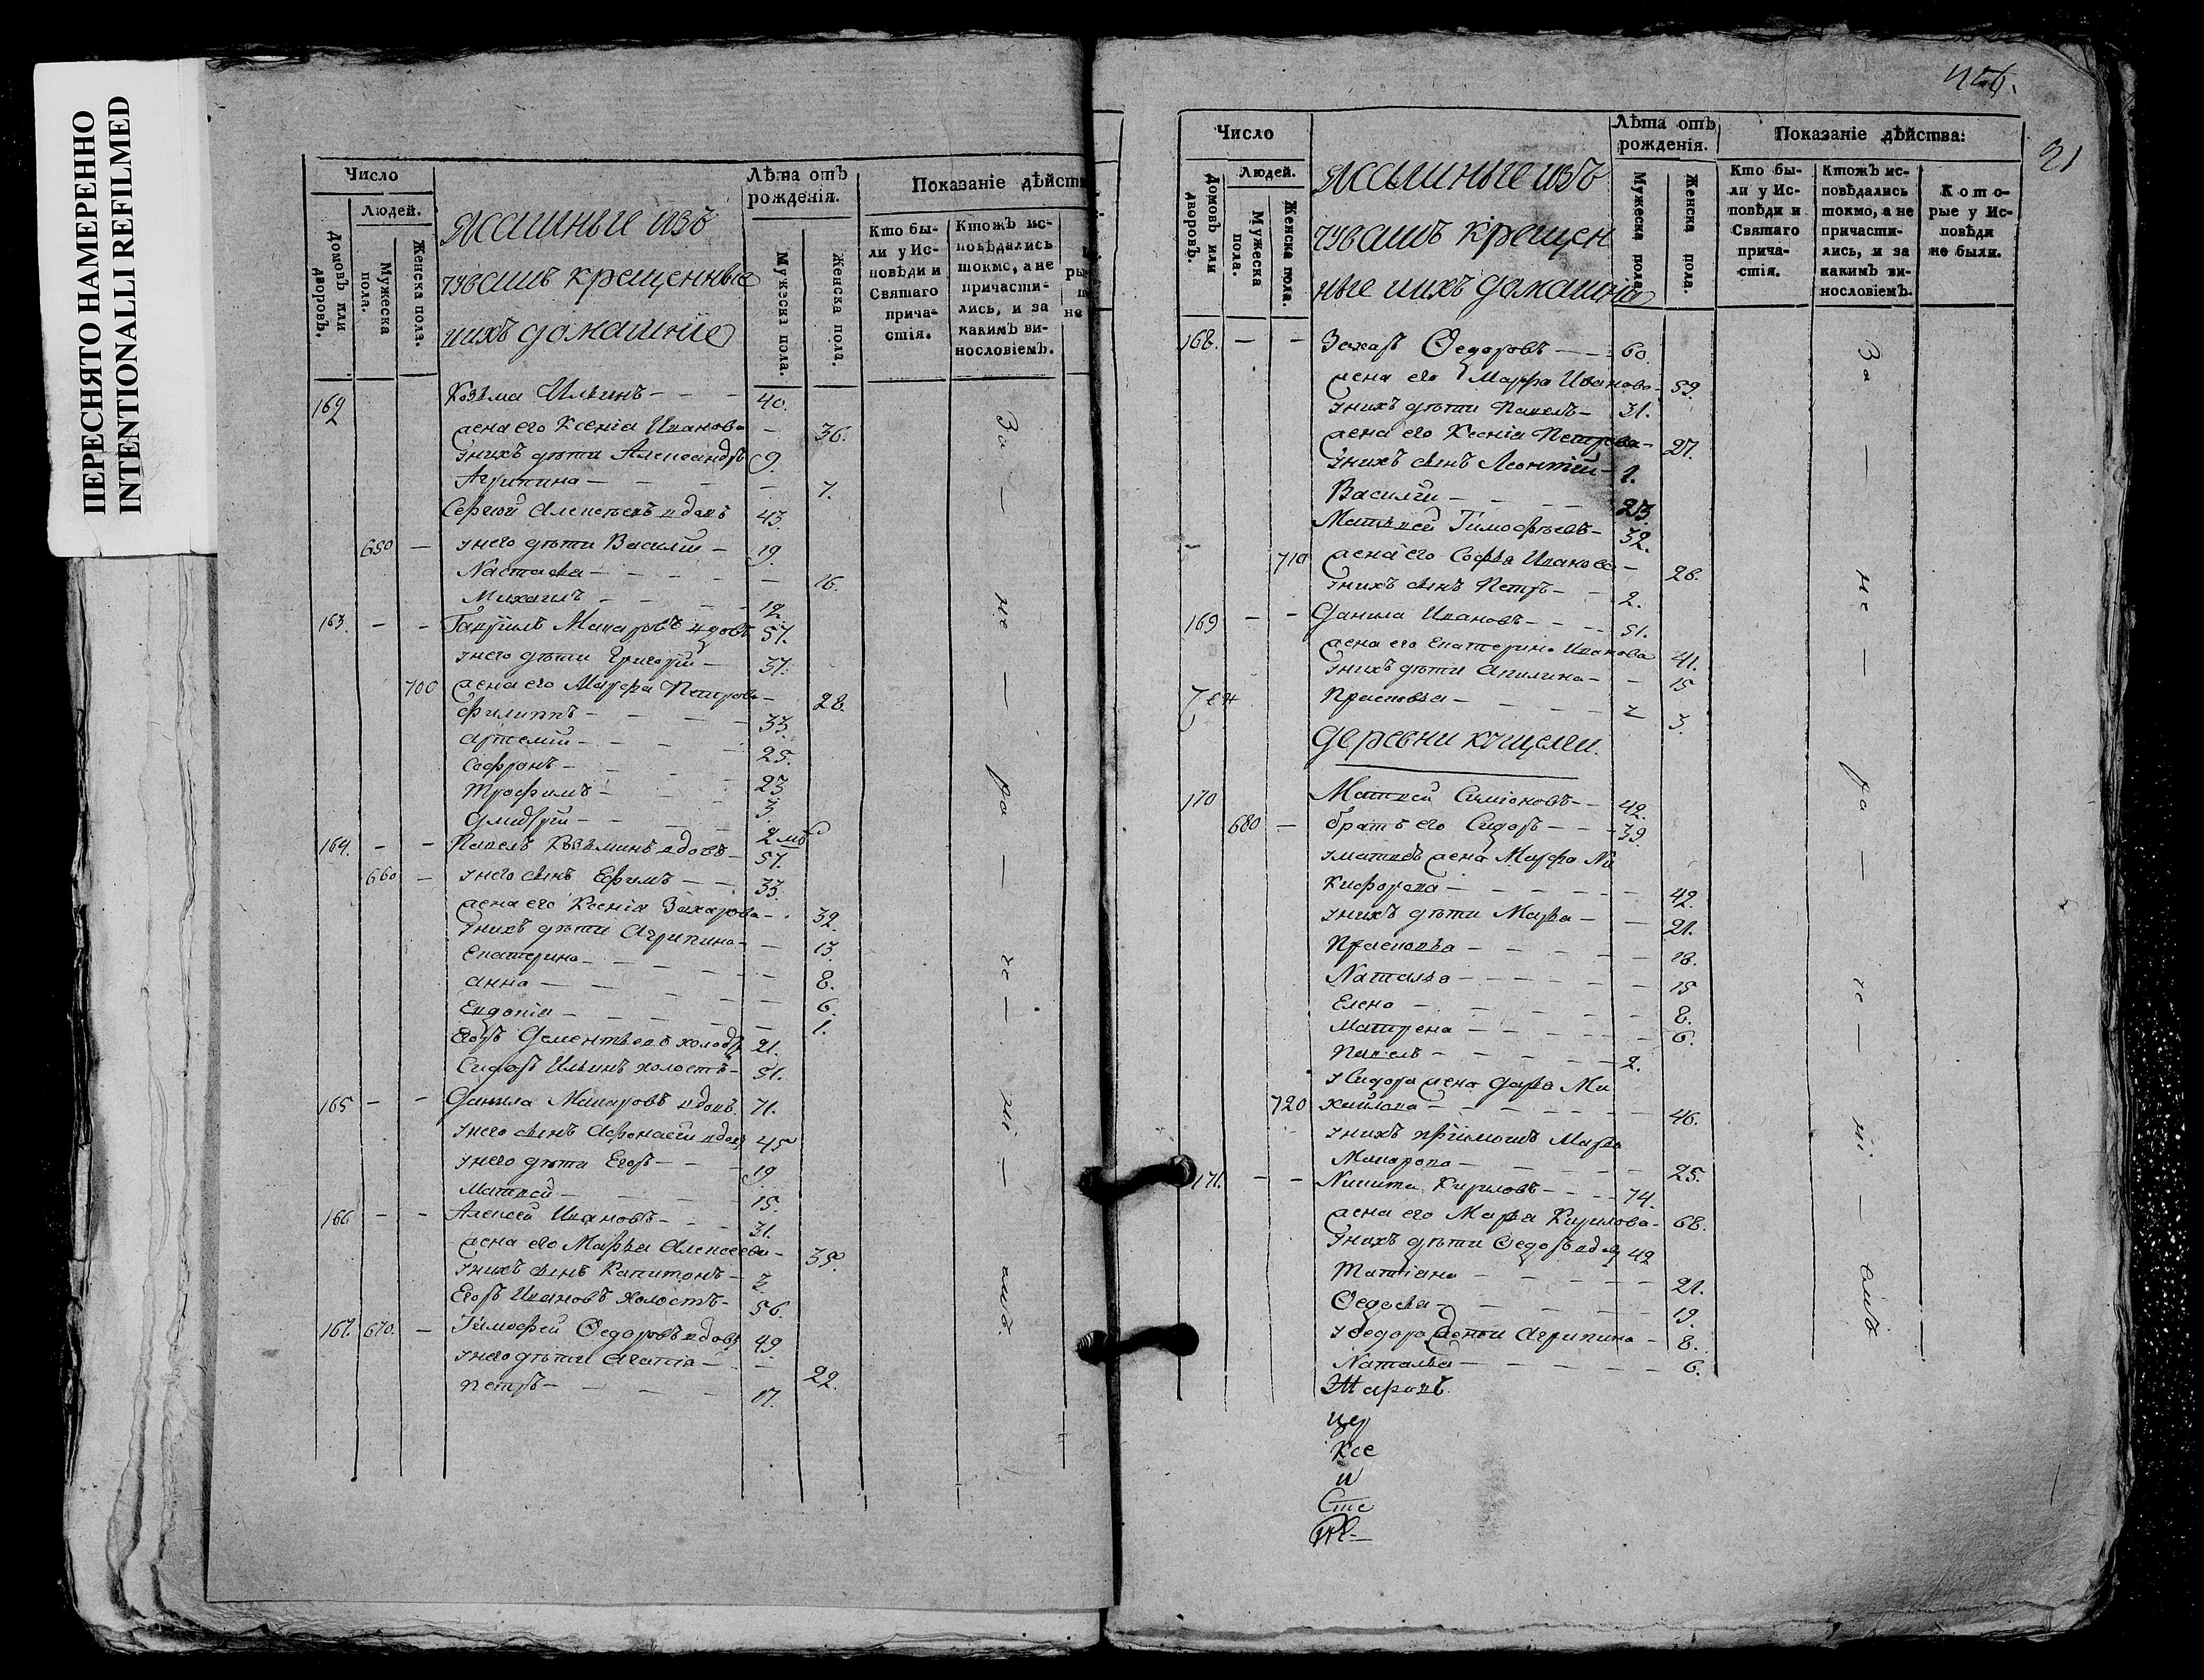 ПЕРЕСНЯТО НАМЕРЕННО
INTENTIONALLI REFILMED
Число
Людей.
Домовъ или дворовъ.
Мужеска пола.
Женска пола.
Ясашные изъ
чувашъ крещенные
ихъ домашніе
Лѣта отъ рожденія.
Мужеска пола.
Женска пола.
Показаніе дѣйств
Кто бы-
ли у Ис-
повѣди и
Святаго
прича-
стія.
Ктожъ ис-
повѣдались
токмо, а не
причасти-
лись, и за
какимъ ви-
нословіемъ.
169 Козьма Ильинъ - - - 40.
жена его Ксенія Иванова - 36.
у нихъ дѣти Александръ 9.
Агрипина - - - - 7.
Сергей Алексѣевъ вдовъ 43.
650 - у него дѣти Василій - 19.
Настасья - - - - - 16.
Михаилъ - - - - 12
163. - - Гаврiилъ Макаровъ вдовъ 57.
у него дѣти Григорій - 37.
700 жена его Марфа Петрова - 28.
Филиппъ - - - - 33.
Артемій - - - - 25.
Софронъ - - - - 23
Трофимъ - - - - 3
Дмидрій - - - - 2 мѣ
164. - - Павелъ Козьминъ вдовъ - 57.
660 - у него сынъ Ефимъ - - 33.
жена его Ксенія Захарова - 32.
у нихъ дѣти Агрипина - - 13.
Екатерина - - - - - 8.
Анна - - - - - 6.
Евдокія - - - - - 1.
Егоръ Дементьевъ холо 21.
Сидоръ Ильинъ холостъ - 51.
165 - - Данила Макаровъ вдовъ. 71.
у него сынъ Афонасей вдовъ 45
у него дѣти Егоръ - - - 19
Матвей - - - - 15.
166 - - Алексей Ивановъ - - - 31.
жена его Марья Алексеева - 35.
у нихъ сынъ Капитонъ - 2.
Егоръ Ивановъ холостъ - 56.
167. 670. - Тимофей Ѳедоровъ вдовъ 49
у него дѣти Агапіа - - 22.
Петръ - - - - 17.
За - не - ра - че - ні - емъ.
21
Число
Людей.
Домовъ или дворовъ.
Мужеска пола.
Женска пола.
Ясашные изъ
чувашъ крещен
ные ихъ домашнія
Лѣта отъ
рожденія.
Мужеска пола
Женска пола.
Показаніе дѣйства:
Кто бы-
ли у Ис-
повѣди и
Святаго
прича-
стія.
Ктожъ ис-
повѣдались
токмо, а не
причасти-
лись, и за
какимъ ви-
нословіемъ.
Кото-
рые у Ис-
повѣди
не были.
168. - - Захаръ Ѳедоровъ - - - 60.
жена его Марфа Иванова - 59.
у нихъ дѣти Павелъ - 31.
жена его Ксенія Петрова - 27.
у нихъ сынъ Леонтій - 1.
Василій - - - - 23
Матвей Тимофѣевъ - 32.
710 жена его Софья Иванова - 26.
у нихъ сынъ Петръ - - 2.
169 - - Данила Ивановъ - - - 51.
жена его Екатерина Иванова 41.
у нихъ дѣти Акилина - - 15
Прасковья - - - - 3.
Деревни Кищели.
170 Матвей Симіоновъ - - 42.
680 - братъ его Сидоръ - - - 39.
у матвея жена Марфа Ни
кифорова - - - - - 42.
у нихъ дѣти Марья - - 21.
Прасковья - - - - - 18.
Наталья - - - - - 15
Елена - - - - - 8.
Матрена - - - - - 6.
Павелъ - - - - - 2.
у Сидора жена Дарья Ми
720 хайлова - - - - - 46.
у нихъ приемышъ Марья
Макарова - - - - - 25.
171. - - Никита Кириловъ - - - 74.
жена его Марья Кирилова - 68.
у нихъ дѣти Ѳедоръ вдовъ 42
Татіана - - - - - 21.
Ѳедосья - - - - - 19.
у Ѳедора дочьи Агрипина - 8.
Наталья - - - - - 6.
За - не - ра - че - ні - емъ
це
Ксе
и
Сте